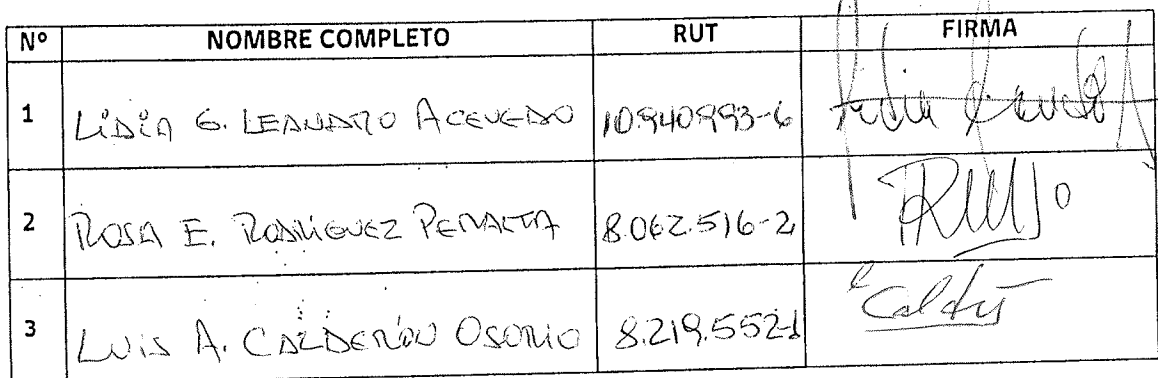 Nº NOMBRE COMPLETO RUT FIRMA
1 LiDiA G. LEANDRO ACEVEDO 10.940.993-6
2 ROSA E. RODRIGUEZ PERALTA 8.062.516-2
3 LUIS A. CALDERÓN OSORIO 8.219.552-1